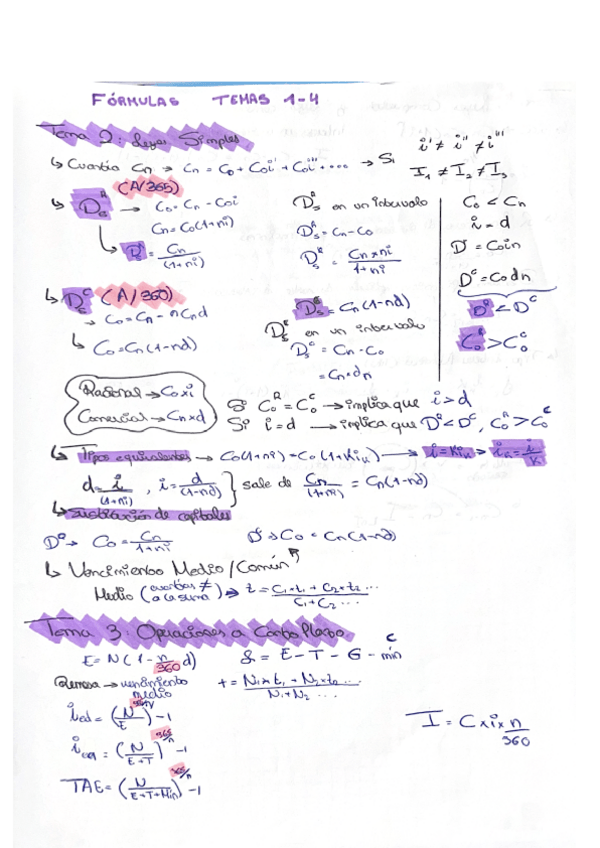 FÓRMULAS TEMAS 1-4
Tema 2: Leyes Simples
↳ Cuantía Cn → Cn = C0 + C0i' + C0i'''+.... → Si i' ≠ i'' ≠ i'''
I1 ≠ I2 ≠ I3
(A/365)
↳ Ds^R → C0 = Cn - C0i
Cn = C0(1+ni)
↳ D = Cn/(1+ni)
Ds^R en un intervalo
Ds^R = Cn - C0
Ds^R = Cn×ni/1+ni
C0 < Cn
i = d
D^r = C0in
D^c = C0dn
D^R < D^c
C0^R > C0^c
↳ Ds^c (A/360)
→ C0 = Cn - nCnd
↳ C0 = Cn(1-nd)
Ds^c = Cn(1-nd)
Ds^c en un intervalo
Ds^c = Cn - C0
= Cn×dn
Racional → C0×i
Comercial → Cn×d
Si C0^R = C0^c → implica que i > d
Si i = d → implica que D^R < D^c, C0^R > C0^c
↳ Tipos equivalentes → C0(1+ni) = C0(1+Kik) → i = Kik > ik = i/K
d = i/(1+ni), i = d/(1-nd) } sale de Cn/(1+ni) = Cn(1-nd)
↳ sustitución de capitales
D^R → C0 = Cn/1+ni D^c → C0 = Cn(1-nd)
↳ Vencimiento Medio/Común
Medio (cuantías ≠ a la suma) → t = C1·t1 + C2×t2.../C1+C2...
Tema 3: Operaciones a Corto Plazo
E = N(1 - n/360 d) & = E - T - G - mín
Remesa → vencimiento medio t = N1×t1 + N2×t2.../N1+N2 ...
= (N/E)^365/n -1
= (N/E+T)^365/n -1
TAE = (N/E+T+Min)^365/n -1
I = C×i×n/360